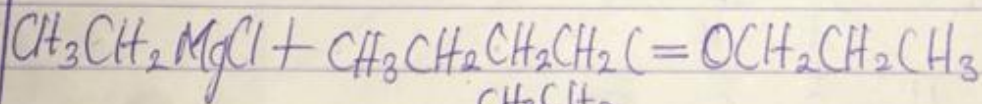 CH₃CH₂MgCl + CH₃CH₂CH₂CH₂C=OCH₂CH₂CH₃